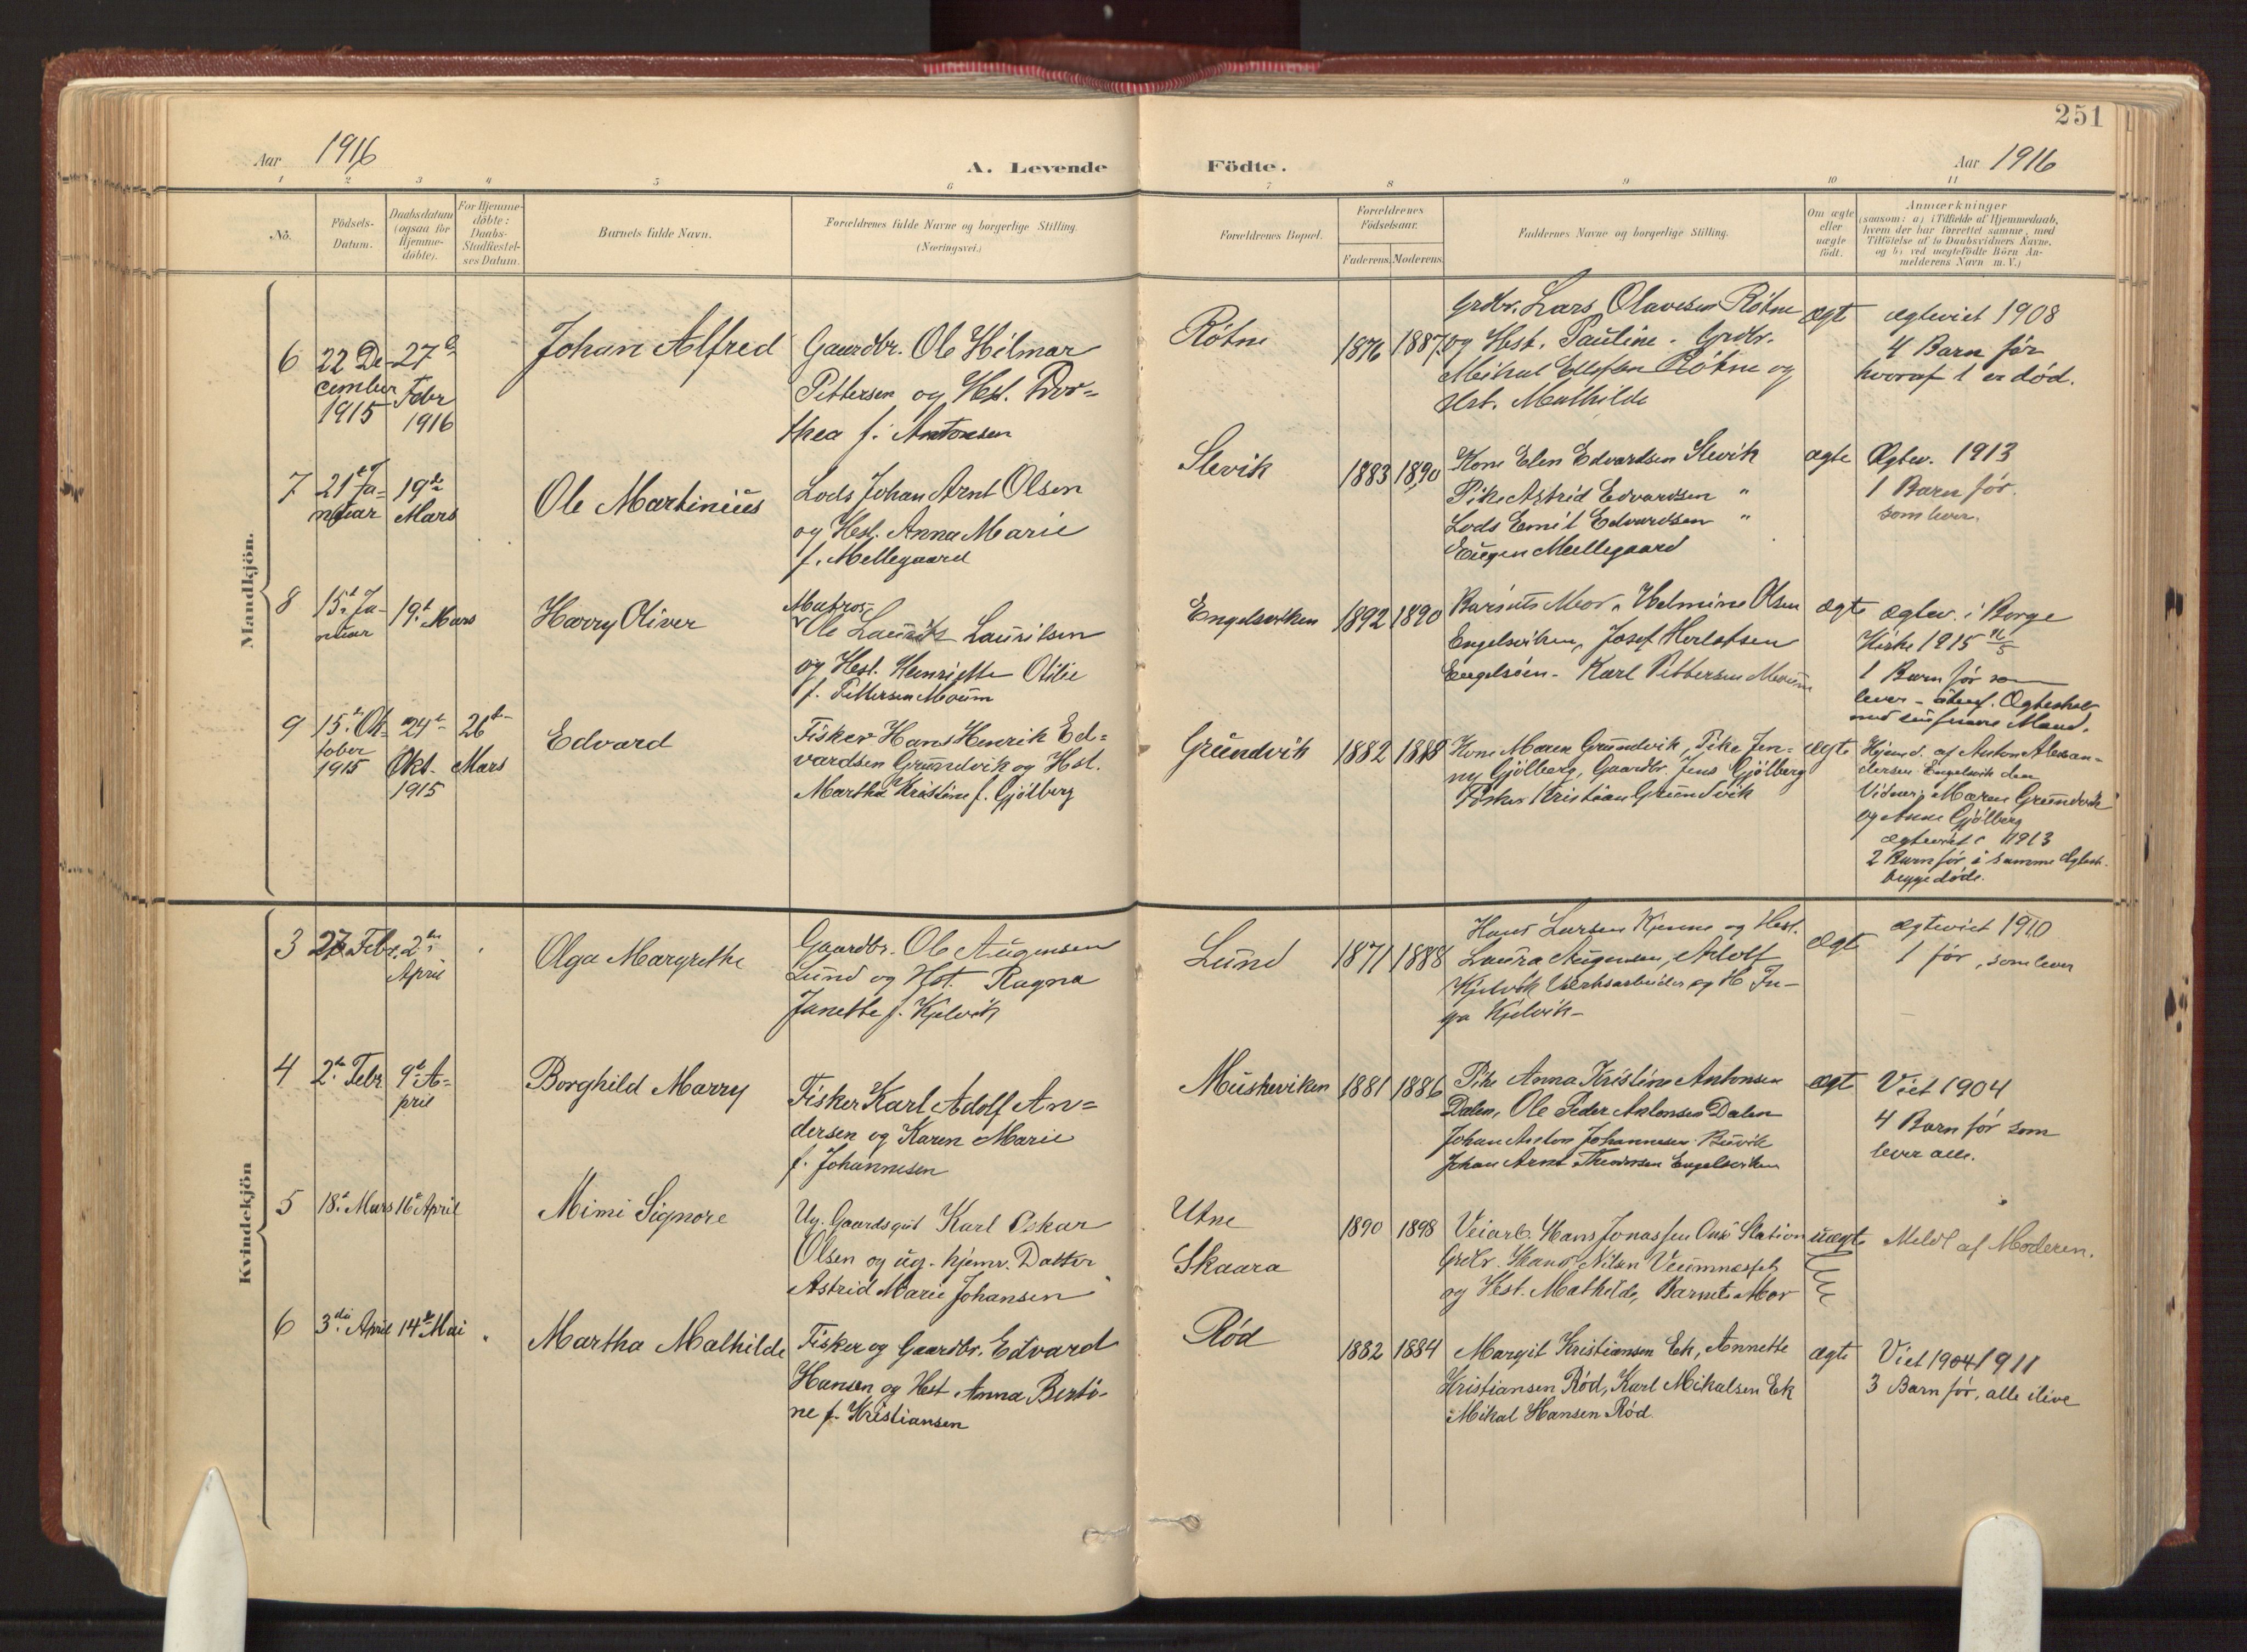 251
Aar 1916
A. Levende
Födte.
Aar 1916
1 2 3 4 5 6 7 8 9 10 11
No.
Födsels-
Datum.
Daabsdatum
(ogsaa för
Hjemme-
döbte).
For Hjemme-
döbte:
Daabs-
Stadfæstel-
ses Datum.
Barnets fulde Navn.
Forældrenes fulde Navne og borgerlige Stilling.
(Næringsvei.)
Forældrenes Bopæl.
Forældrenes
Födselsaar.
Faderens. Moderens.
Faddernes Navne og borgerlige Stilling.
Om ægte
eller
uægte
födt.
Anmærkninger
(saasom: a) i Tilfælde af Hjemmedaab,
hvem der har forrettet samme, med
Tilföielse af to Daabsvidners Navne,
og b) ved uægtefödte Börn An-
melderens Navn m. V.)
Mandkjön.
6
22 De-
cember
1915
27d
Febr
1916
Johan Alfred
Gaardbr. Ole Hilmar
Pettersen og Hst. Dor-
thea f. Antonsen
Rötne
1876
1887
Grdbr. Lars Olavesen Rötne
og Hst. Pauline. Grdbr.
Mikal Rötne og
Hst. Mathilde
ægt
ægteviet 1908
4 Barn för
hvoraf 1 er död.
7
21de Ja-
nuar
19de
Mars
Ole Martinius
Lods Johan Arnt Olsen
og Hst. Anna Marie
f. Mellegaard
Slevik
1883
1890
Kone Elen Edvardsen Slevik
Pike Astrid Edvardsen "
Lods Emil Edvardsen "
Eugen Mellegaard
ægte
Ægtev. 1913
1 Barn för.
som lever.
8
15de Ja-
nuar
19de Mars
Harry Oliver
Matros
Ole Lauritz Lauritsen
og Hst. Henriette Otilie
f. Pettersen Moum
Engelsviken
1892
1890
Barnets Mor, Helmine Olsen
Engelsviken, Josef Herlofsen
Engelsöen - Karl Pettersen Moum
ægte
ægtev. i Borge
Kirke 1915
1 Barn för som
lever
Mand.
9
15de Ok-
tober
1915
24de
Okt.
1915
26de
Mars
Edvard
Fisker Hans Henrik Ed-
vardsen Grundvik og Hst.
Martha Kristine f. Gjölberg
Grundvik
1882
1888
Kone Maren Grundvik, Pike Jen-
ny Gjölberg, Gaardbr. Jens Gjölberg
Fisker Kristian Grundvik
ægte
Hjemd. af Anton Alexan-
dersen Engelsvik den
Vidner: Maren Grundvik
og Anne Gjölberg
ægteviet 1913
2 Barn för i samme Ægtesk.
begge döde.
Kvindekjön
3
27 Febr.
2den
April
Olga Margrethe
Gaardbr. Ole Augensen
Lund og Hst. Ragna
Janette f. Kjelvik
Lund
1871
1888
Hans Larsen Kjenne og Hst.
Laura Augensen, Adolf
Kjelvik Verksarbeider og H In-
ga Kjelvik
ægte
ægteviet 1910
1 för, som lever
4
2den Febr
9de A-
pril
Borghild Marry
Fisker Karl Adolf An-
dersen og Karen Marie
f. Johannesen
Muskeviken
1881
1886
Pike Anna Kristine Antonsen
Dalen, Ole Peder Antonsen Dalen
Johan Anton Johannesen Buvik
Johan Arnt Engelsviken
ægt
Viet 1904
4 Barn för som
lever alle.
5
18de Mars
16de April
Mimi Signore
Ug. Gaardsgut Karl Oskar
Olsen og ug. hjemv. Datter
Astrid Marie Johansen
Utne
Skaara
1890
1898
Veiarb. Hans Jonassen Onsö Station
Grdbr. Hans Nilsen
og Hst. Mathilde, Barnets Mor
uægte
Meldt af Moderen.
6
3die April
14de Mai
"
Martha Mathilde
Fisker og Gaardbr. Edvard
Hansen og Hst Anna Berti-
ne f. Kristiansen
Röd
1882
1884
Margit Kristiansen Ek, Annette
Kristiansen Röd, Karl Mikalsen Ek
Mikal Hansen Röd.
ægte
Viet 1904 1911
3 Barn för, alle ilive